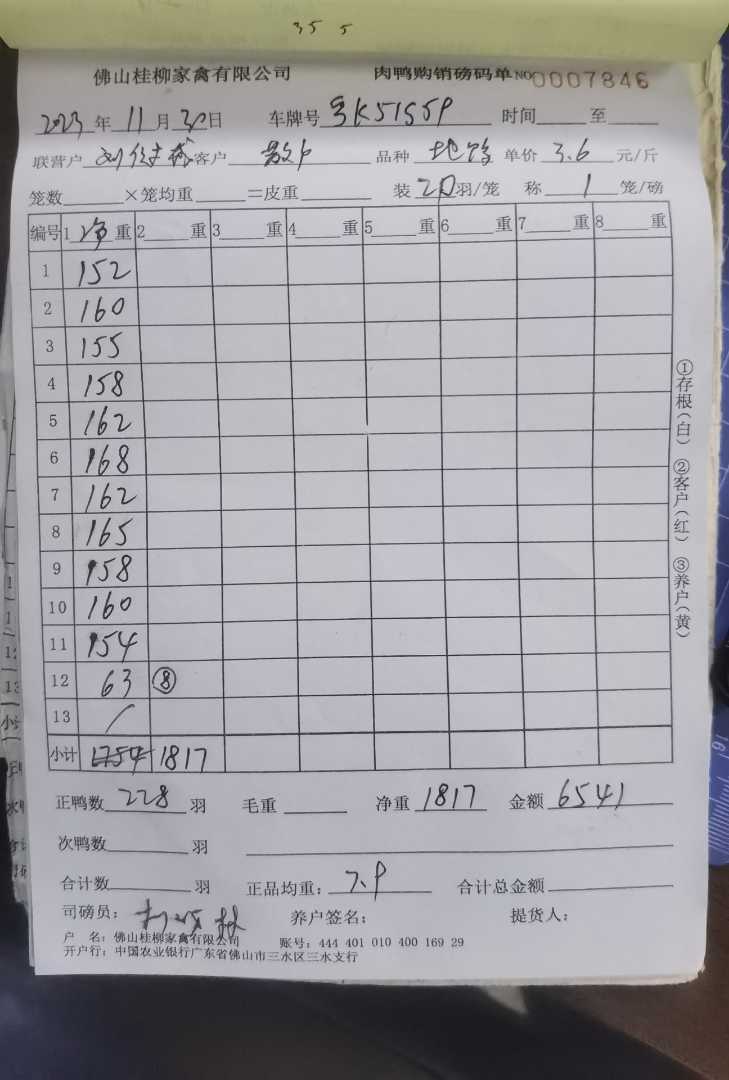 35 5
佛山桂柳家禽有限公司 肉鸭购销磅码单 NO 0007846
2023年11月30日 车牌号 粤K51S59 时间 至
联营户 客户 散户 品种 地鸭 单价 3.6 元/斤
笼数 ×笼均重 =皮重 装 20 羽/笼 称 1 笼/磅
编号 1 净重 2 重 3 重 4 重 5 重 6 重 7 重 8 重
1 152
2 160
3 155
4 158
5 162
6 168
7 162
8 165
9 158
10 160
11 154
12 63 ⑧
13 /
小计 1754 1817
正鸭数 228 羽 毛重 净重 1817 金额 6541
次鸭数 羽
合计数 羽 正品均重: 7.9 合计总金额
司磅员: 养户签名: 提货人:
户 名: 佛山桂柳家禽有限公司 账号: 444 401 010 400 169 29
开户行: 中国农业银行广东省佛山市三水区三水支行
①存根(白) ②客户(红) ③养户(黄)